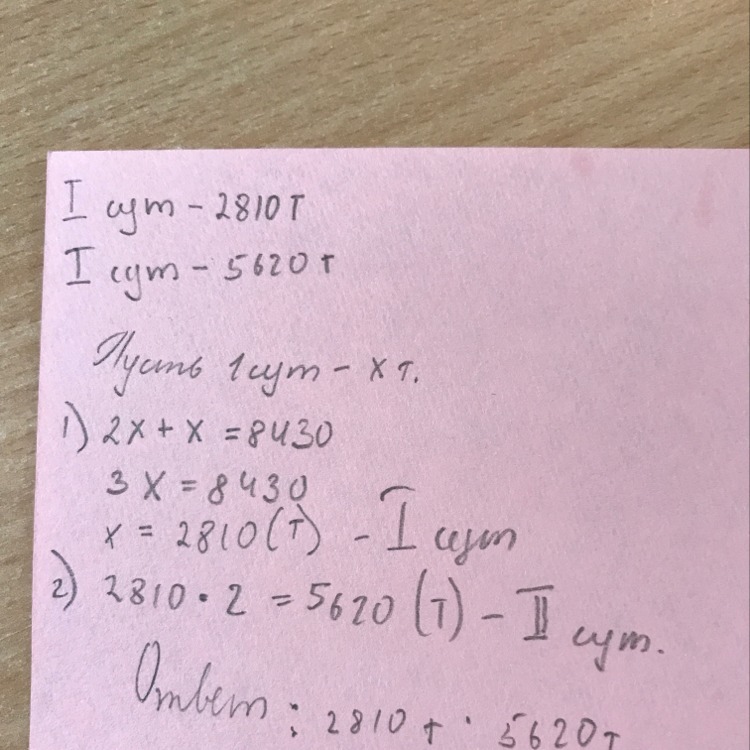 I сут - 2810 т
I сут - 5620 т
Пусть 1 сут - х т.
1) 2х + х = 8430
3 х = 8430
х = 2810 (т) - I сут
2) 2810 · 2 = 5620 (т) - II сут.
Ответ : 2810 т · 5620 т